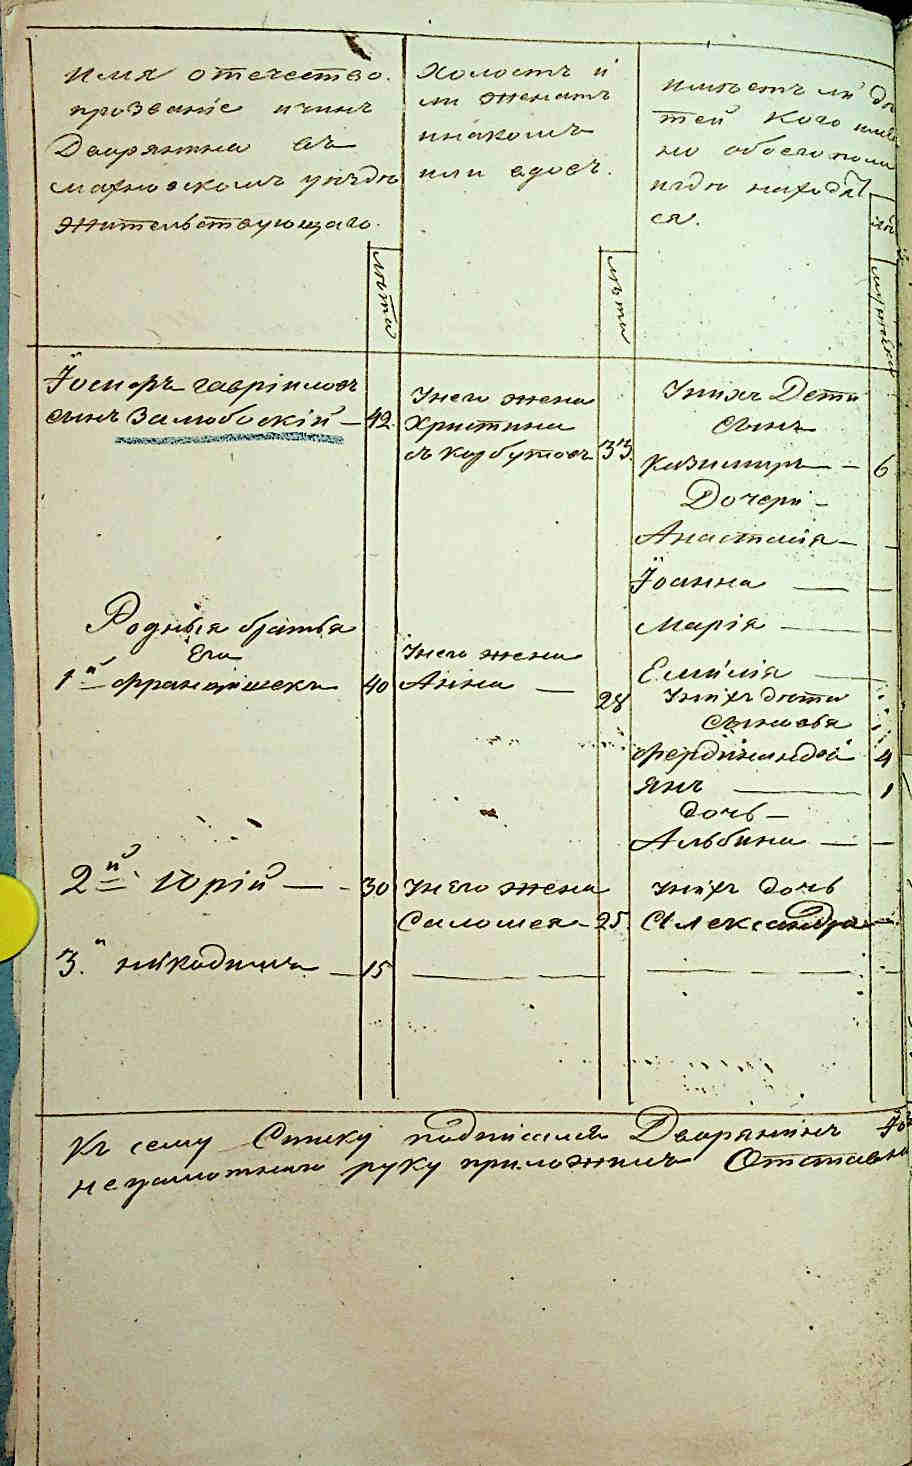 имя отечество.
прозвание ичинъ
Дворянина въ
махновскомъ уѣздѣ
жительствующаго.
лѣта
холостъ и
ли женатъ
инакомъ
или вдовъ.
лѣта
имѣетъ ли дѣ
тей кого имен
но обоего пола
игдѣ находят
ся.
Іосифъ гавріиловъ
сынъ Залюбоскій — 42.
Унего жена
Христина
съ Корбутовъ 33.
Унихъ Дети
сынъ
Казимиръ — 6
Дочери —
Анастасія — —
Іоанна — —
Марія — —
Емилія —
Родныя братья
Его
1й францишекъ 40
Унего жена
Анна — 28
Унихъ дѣти
сыновья
Фердинандъ 4
янъ — 1
дочь —
Альбина — —
2й Юрій — 30
Унего жена
Саломея — 25
Унихъ дочь
Александра —
3.й никодимъ — 15
Къ сему Списку подписался Дворянинъ
неграмотнаго руку приложилъ Отставн